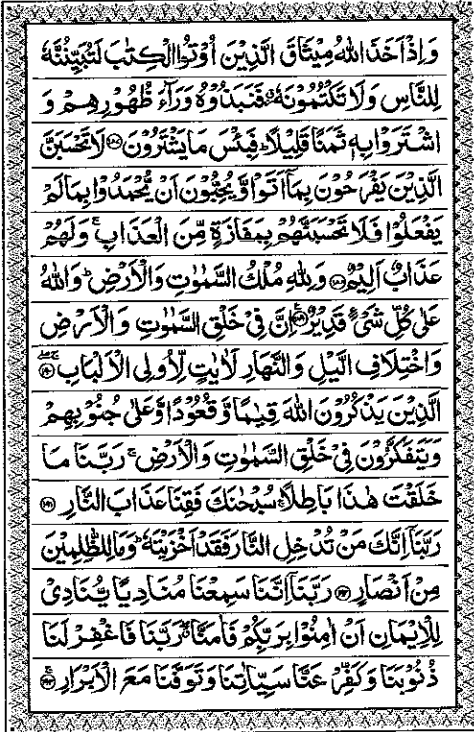 وَاِذْ اَخَذَ اللّٰهُ مِيْثَاقَ الَّذِيْنَ اُوْتُوا الْكِتٰبَ لَتُبَيِّنُنَّهٗ
لِلنَّاسِ وَلَا تَكْتُمُوْنَهٗ فَنَبَذُوْهُ وَرَآءَ ظُهُوْرِهِمْ وَ
اشْتَرَوْا بِهٖ ثَمَنًا قَلِيْلًا ؕ فَبِئْسَ مَا يَشْتَرُوْنَ ﴿۱۸۷﴾ لَا تَحْسَبَنَّ
الَّذِيْنَ يَفْرَحُوْنَ بِمَاۤ اَتَوْا وَّيُحِبُّوْنَ اَنْ يُّحْمَدُوْا بِمَا لَمْ
يَفْعَلُوْا فَلَا تَحْسَبَنَّهُمْ بِمَفَازَةٍ مِّنَ الْعَذَابِ ۚ وَلَهُمْ
عَذَابٌ اَلِيْمٌ ﴿۱۸۸﴾ وَلِلّٰهِ مُلْكُ السَّمٰوٰتِ وَالْاَرْضِ ؕ وَاللّٰهُ
عَلٰى كُلِّ شَىْءٍ قَدِيْرٌ ﴿۱۸۹﴾ اِنَّ فِىْ خَلْقِ السَّمٰوٰتِ وَالْاَرْضِ
وَاخْتِلَافِ الَّيْلِ وَالنَّهَارِ لَاٰيٰتٍ لِّاُولِى الْاَلْبَابِ ﴿۱۹۰﴾
الَّذِيْنَ يَذْكُرُوْنَ اللّٰهَ قِيٰمًا وَّقُعُوْدًا وَّعَلٰى جُنُوْبِهِمْ
وَيَتَفَكَّرُوْنَ فِىْ خَلْقِ السَّمٰوٰتِ وَالْاَرْضِ ۚ رَبَّنَا مَا
خَلَقْتَ هٰذَا بَاطِلًا ۚ سُبْحٰنَكَ فَقِنَا عَذَابَ النَّارِ ﴿۱۹۱﴾
رَبَّنَاۤ اِنَّكَ مَنْ تُدْخِلِ النَّارَ فَقَدْ اَخْزَيْتَهٗ ؕ وَمَا لِلظّٰلِمِيْنَ
مِنْ اَنْصَارٍ ﴿۱۹۲﴾ رَبَّنَاۤ اِنَّنَا سَمِعْنَا مُنَادِيًا يُّنَادِىْ
لِلْاِيْمَانِ اَنْ اٰمِنُوْا بِرَبِّكُمْ فَاٰمَنَّا ۖ رَبَّنَا فَاغْفِرْ لَنَا
ذُنُوْبَنَا وَكَفِّرْ عَنَّا سَيِّاٰتِنَا وَتَوَفَّنَا مَعَ الْاَبْرَارِ ﴿۱۹۳﴾